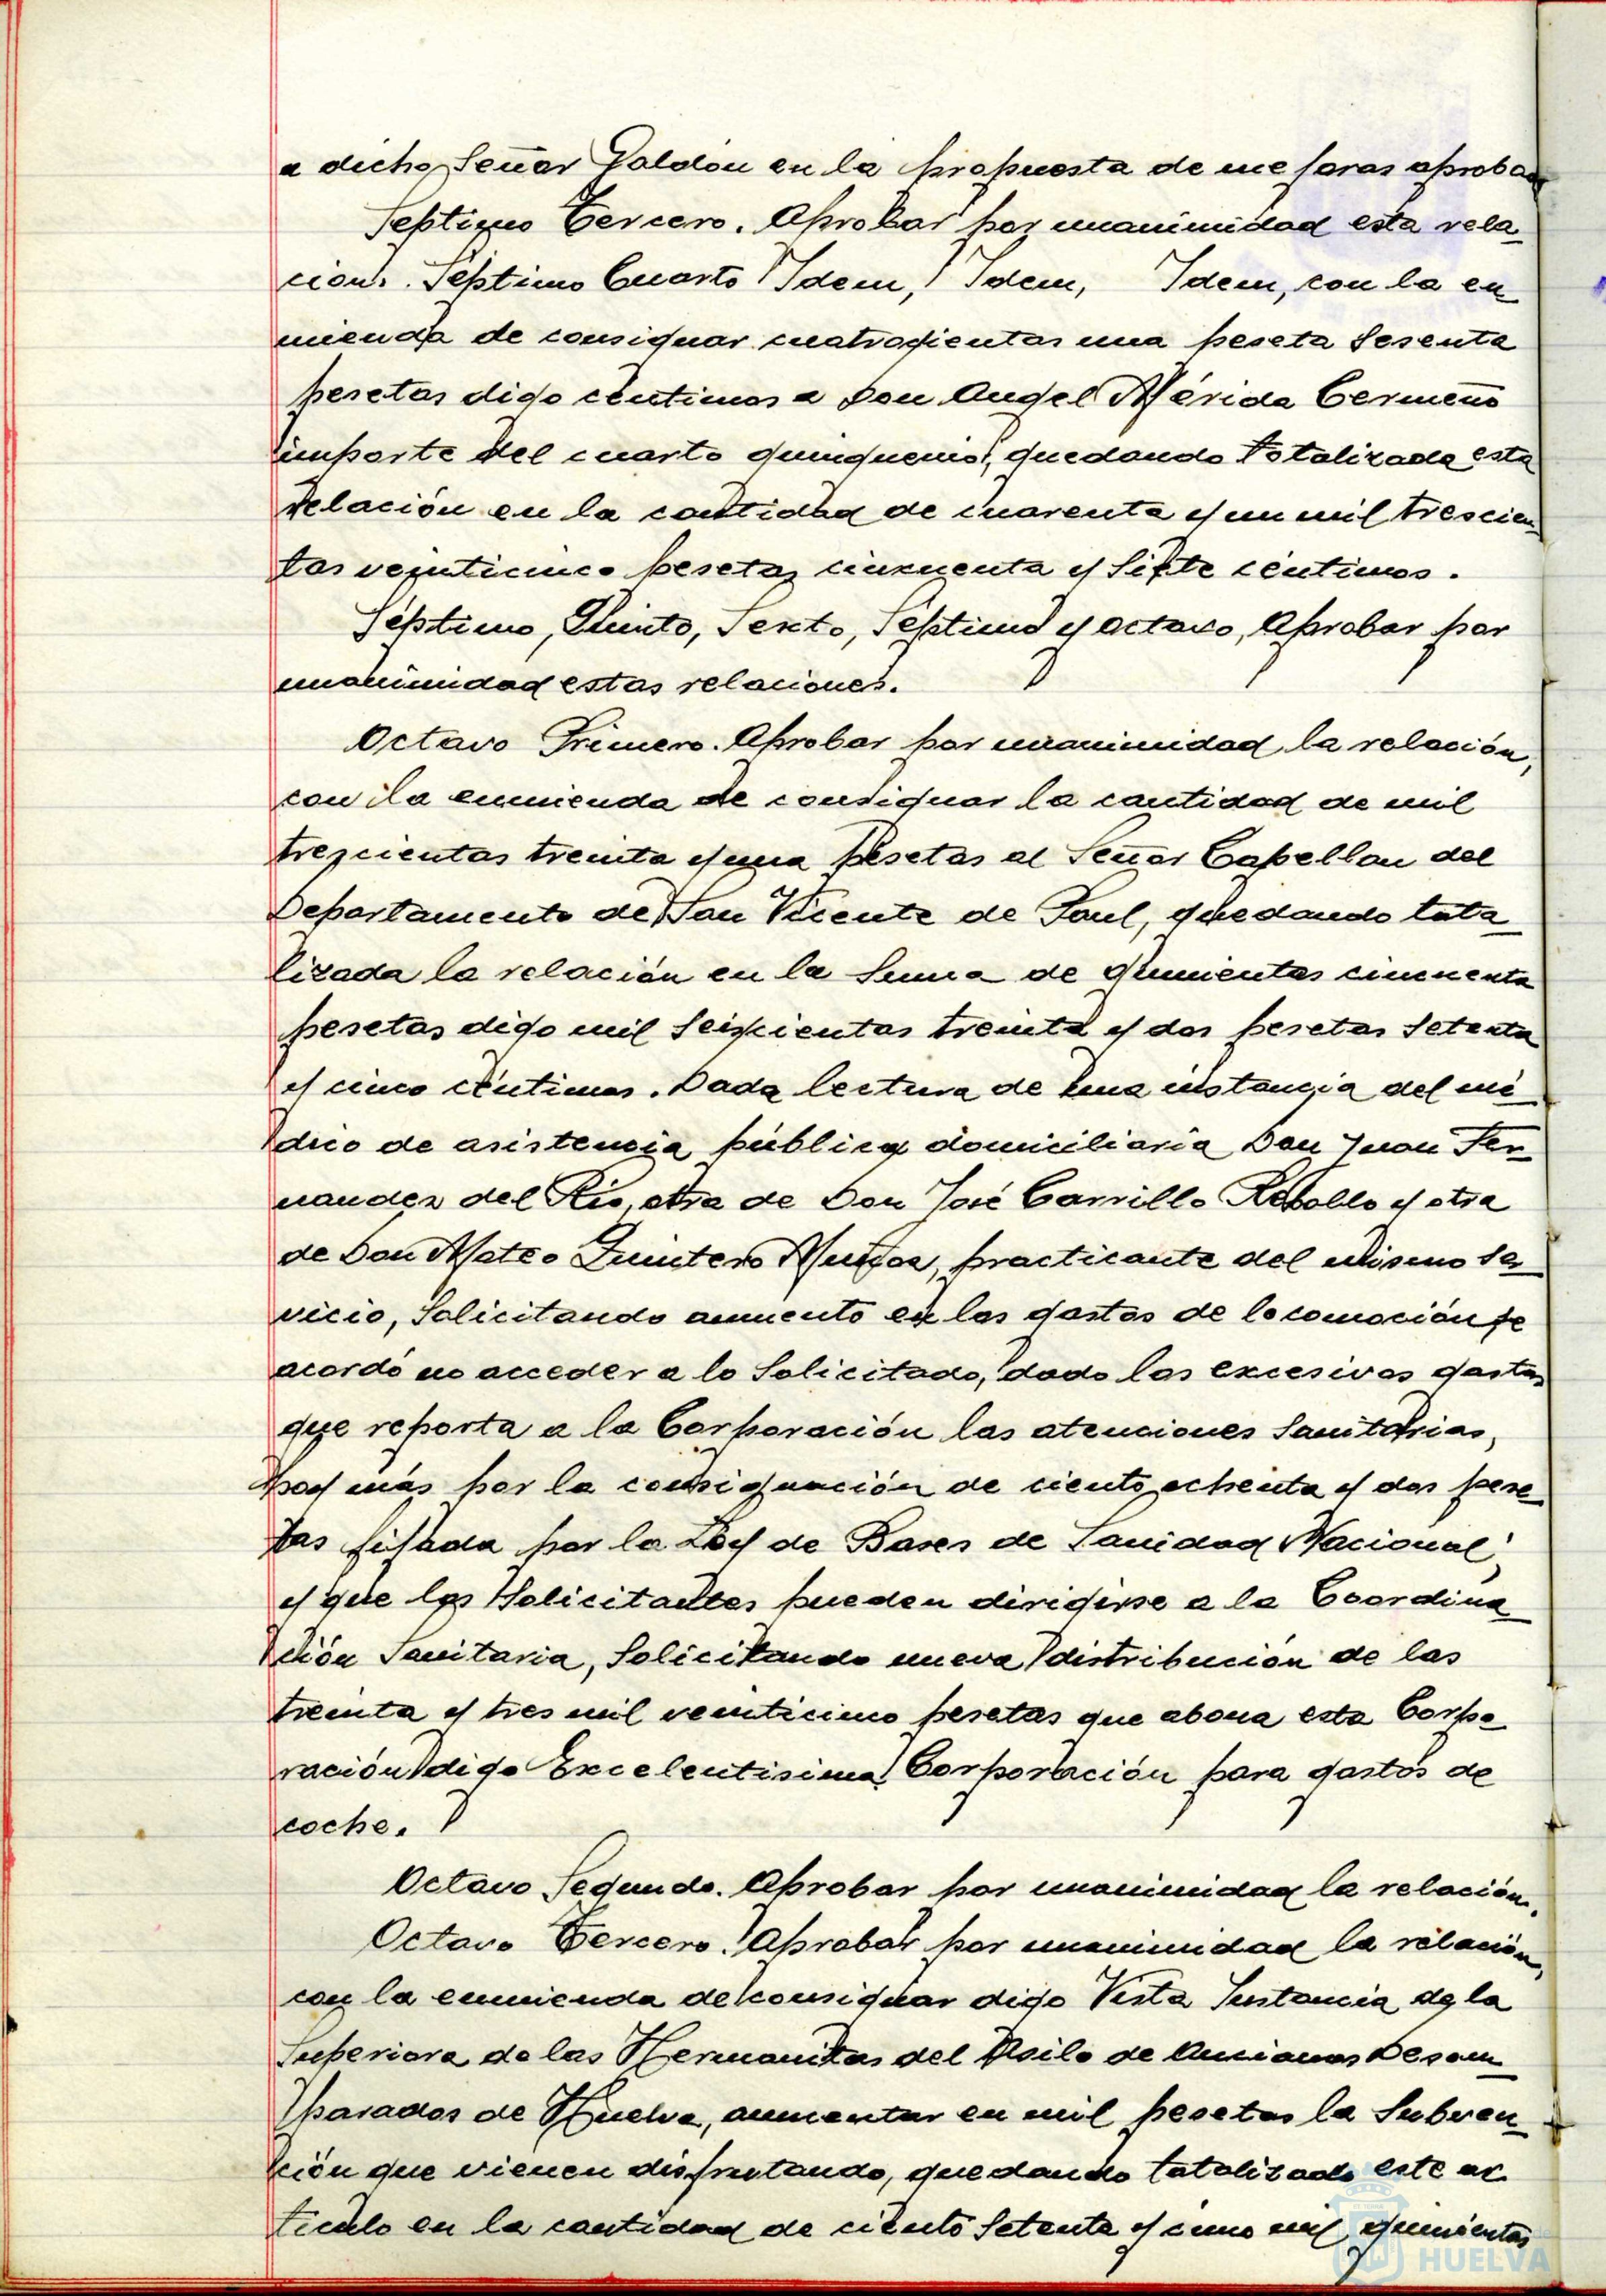 a dicho Señor Galdón en la propuesta de mejoras aprobada
Septimo Tercero. Aprobar por unanimidad esta rela-
cion. Séptimo Cuarto Idem, Idem, Idem, con la en-
mienda de consignar cuatrocientas una peseta sesenta
pesetas digo céntimos a Don Angel Mérida Cermeño
importe del cuarto quinquenio, quedando totalizada esta
relación en la cantidad de cuarenta y un mil trescien-
tas veinticinco pesetas cincuenta y siete céntimos.
Séptimo, Quinto, Sexto, Séptimo y octavo, Aprobar por
unanimidad estas relaciones.
Octavo Primero. Aprobar por unanimidad la relación,
con la enmienda de consignar la cantidad de mil
trescientas treinta y una pesetas al Señor Capellan del
Departamento de San Vicente de Paul, quedando tota-
lizada la relación en la suma de quinientas cincuenta
pesetas digo mil seiscientas treinta y dos pesetas setenta
y cinco céntimos. Dada lectura de una instancia del mé-
dico de asistencia pública domiciliaria Don Juan Fer-
nandez del Rio, otra de Don José Carrillo Rebollo y otra
de Don Mateo Quintero Muñoz, practicante del mismo ser-
vicio, solicitando aumento en los gastos de locomoción se
acordó no acceder a lo solicitado, dado los excesivos gastos
que reporta a la Corporación las atenciones sanitarias,
hoy más por la consignación de ciento ochenta y dos pese-
tas fijada por la Ley de Bases de Sanidad Nacional;
y que los solicitantes pueden dirigirse a la Coordina-
ción Sanitaria, solicitando nueva distribución de las
treinta y tres mil veinticinco pesetas que abona esta Corpo-
ración digo Excelentisima Corporación para gastos de
coche.
Octavo Segundo. Aprobar por unanimidad la relación.
Octavo Tercero. Aprobar por unanimidad la relación,
con la enmienda de consignar digo Vista Instancia de la
Superiora de las Hermanitas del Asilo de Ancianos Desam-
parados de Huelva, aumentar en mil pesetas la subven-
ción que vienen disfrutando, quedando totalizado este ar-
ticulo en la cantidad de ciento setenta y cinco mil quinientas
HUELVA